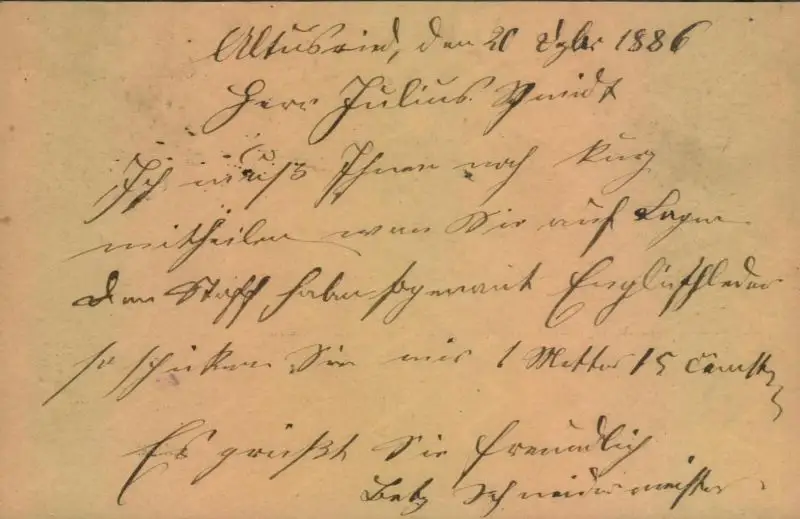 Altusried, den 20 Dzbr 1886
Herr Julius Schmidt
Ich muß Ihnen noch kurz
mittheilen wan Sie auf Lager
den Stoff haben sogenannt Englischleder
so schicken Sie mir 1 Metter 15 Centtr
Es grüßt Sie freundlich
Betz Schneidermeister